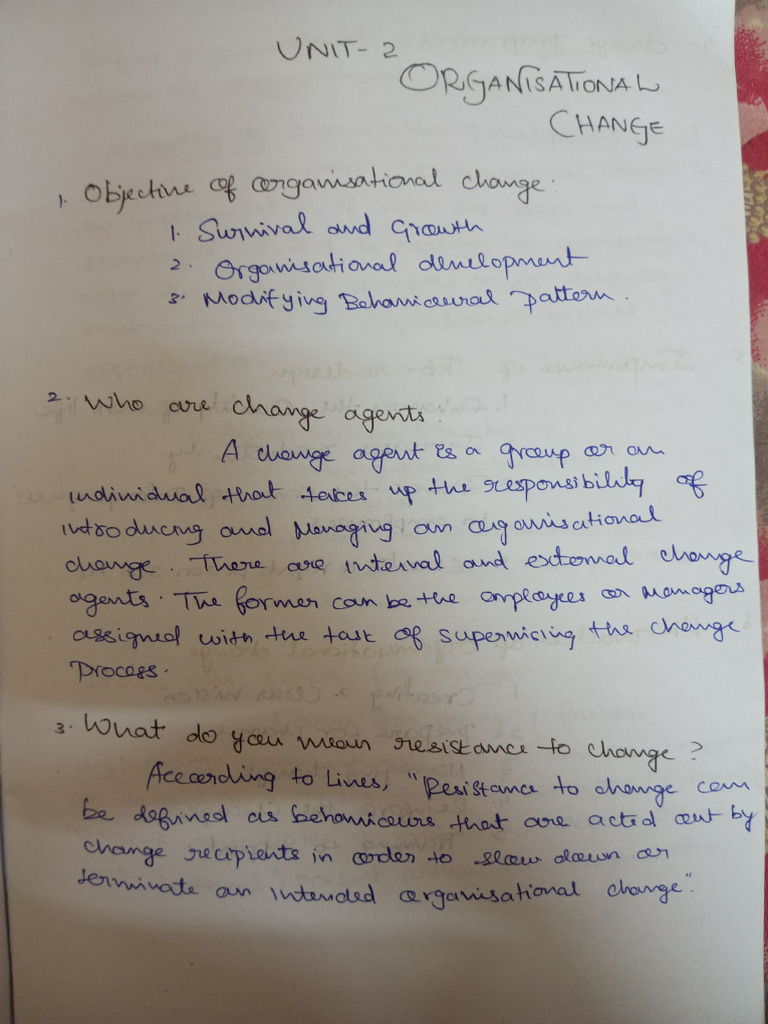 UNIT- 2
ORGANISATIONAL
CHANGE
1. Objective of organisational change:
1. Survival and Growth
2. Organisational development
3. Modifying Behavioural pattern.
2. Who are change agents:
A change agent is a group or an
individual that takes up the responsibility of
introducing and Managing an organisational
change. There are internal and external change
agents. The former can be the employees or Managers
assigned with the task of supervising the change
process.
3. What do you mean resistance to change?
According to Lines, "Resistance to change can
be defined as behaviours that are acted out by
change recipients in order to slow down or
terminate an intended organisational change".